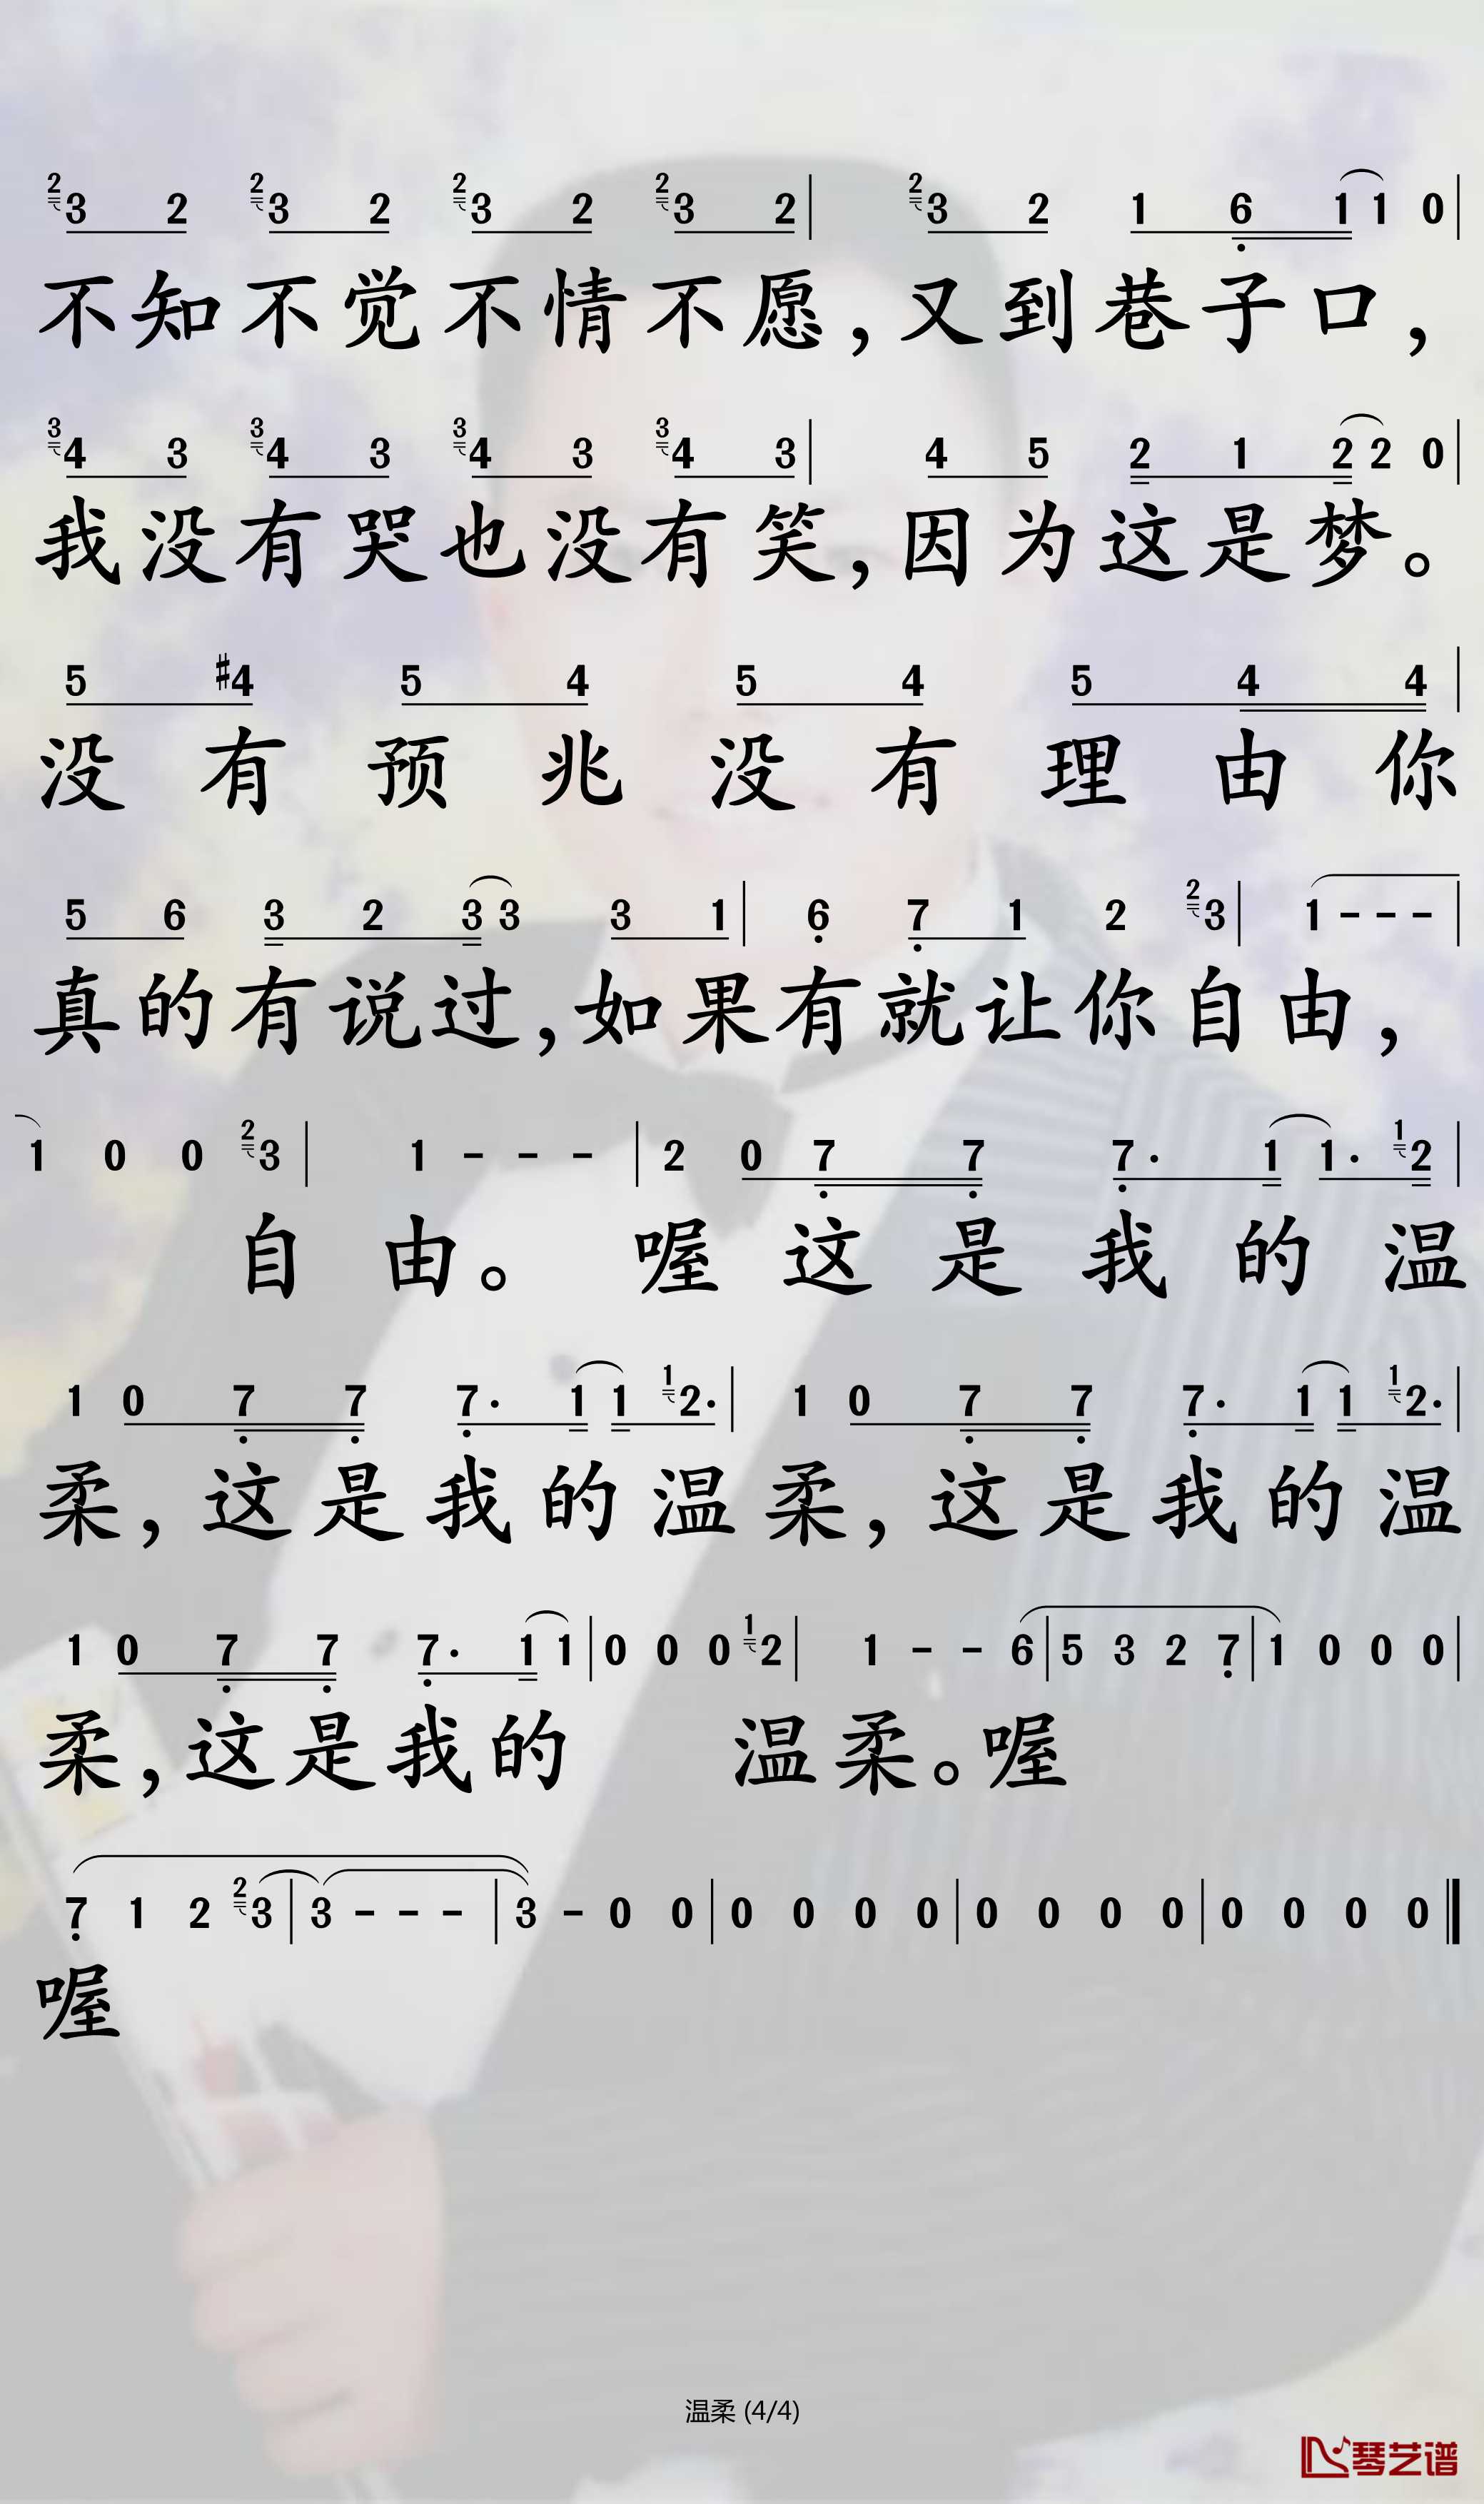 ²3 2 ²3 2 ²3 2 ²3 2 | ²3 2 1 6̣ 1 1 0 |
不知不觉不情不愿,又到巷子口,
³4 3 ³4 3 ³4 3 ³4 3 | 4 5 2 1 2 2 0 |
我没有哭也没有笑,因为这是梦。
5 #4 5 4 5 4 5 4 4 |
没有预兆没有理由你
5 6 3 2 3 3 3 1 | 6̣ 7̣ 1 2 ²3 | 1 - - - |
真的有说过,如果有就让你自由,
1 0 0 ²3 | 1 - - - | 2 0 7̣ 7̣ 7̣· 1 1· ¹2 |
自由。喔这是我的温
1 0 7̣ 7̣ 7̣· 1 1 ¹2· | 1 0 7̣ 7̣ 7̣· 1 1 ¹2· |
柔,这是我的温柔,这是我的温
1 0 7̣ 7̣ 7̣· 1 1 | 0 0 0 ¹2 | 1 - - 6 | 5 3 2 7̣ | 1 0 0 0 |
柔,这是我的温柔。喔
7̣ 1 2 ²3 | 3 - - - | 3 - 0 0 | 0 0 0 0 | 0 0 0 0 | 0 0 0 0 ‖
喔
温柔 (4/4)
琴艺谱